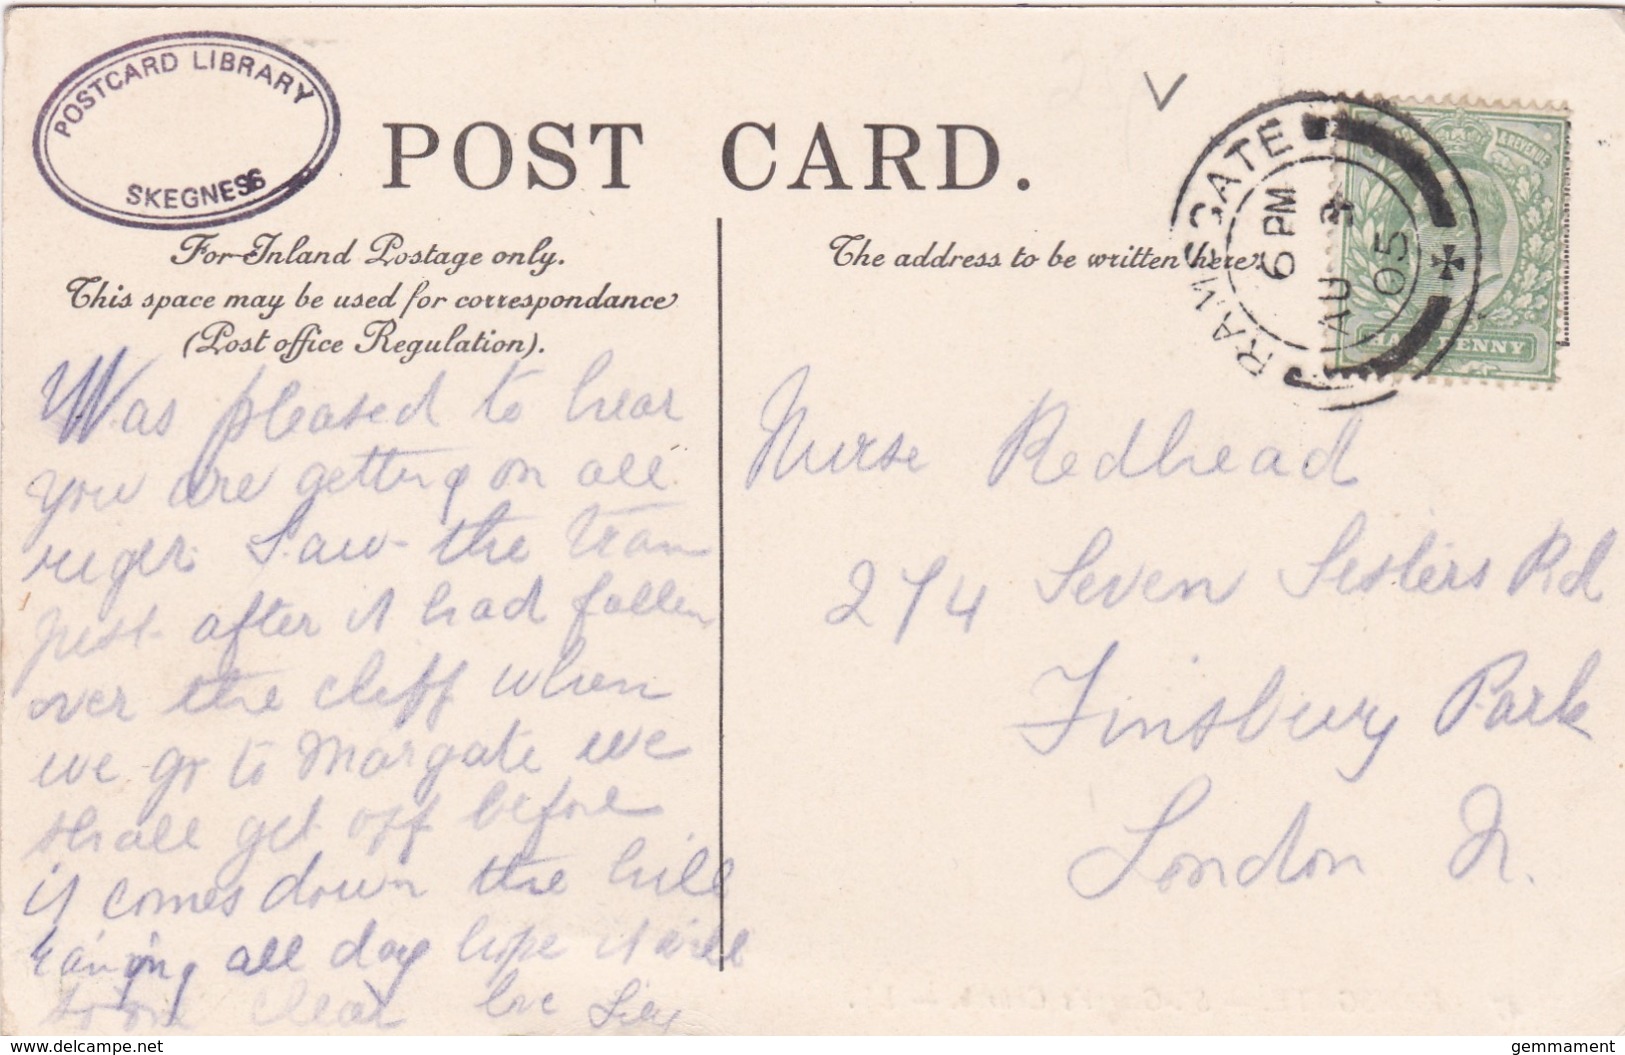 POSTCARD LIBRARY
SKEGNESS
POST CARD.
For Inland Postage only.
This space may be used for correspondance
(Post office Regulation).
The address to be written here.
RAMSGATE
6 PM
AU 3
05
& REVENUE
HALF PENNY
Was pleased to hear
you are getting on all
right. Saw the tram
just after it had fallen
over the cliff when
we go to Margate we
shall get off before
it comes down the hill
raining all day hope it will
soon clear love Lily
Nurse Redhead
274 Seven Sisters Rd
Finsbury Park
London N.
www.delcampe.net
gemmament